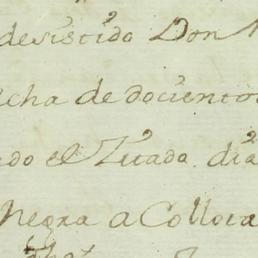 desistido Don
icha de docientos
do el Tuada dia
Negra a Colloca